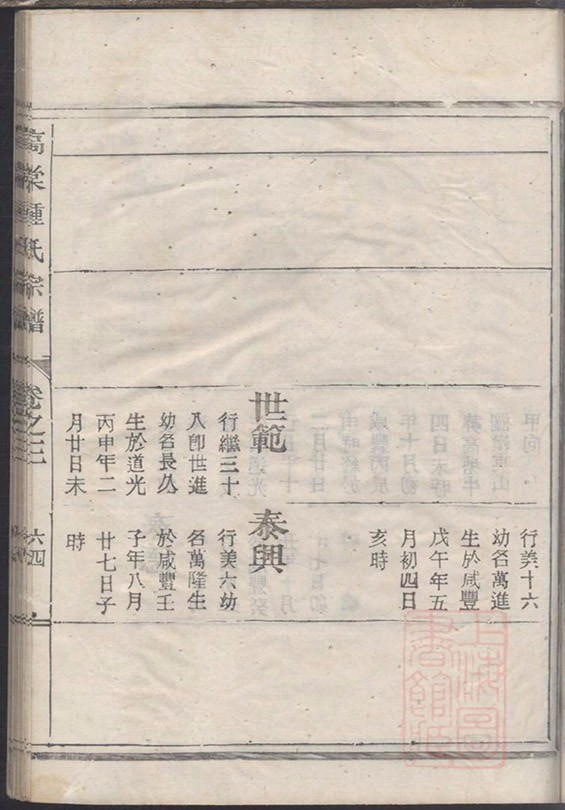 行美十六
幼名萬進
生於咸豐
戊午年五
月初四日
亥時
世範
行繼三十
八卽世進
幼名長久
生於道光
丙申年二
月廿日未
泰興
行美六幼
名萬隆生
於咸豐壬
子年八月
廿七日子
時
高棠鍾氏宗譜
卷之三
六四
上海圖書館藏